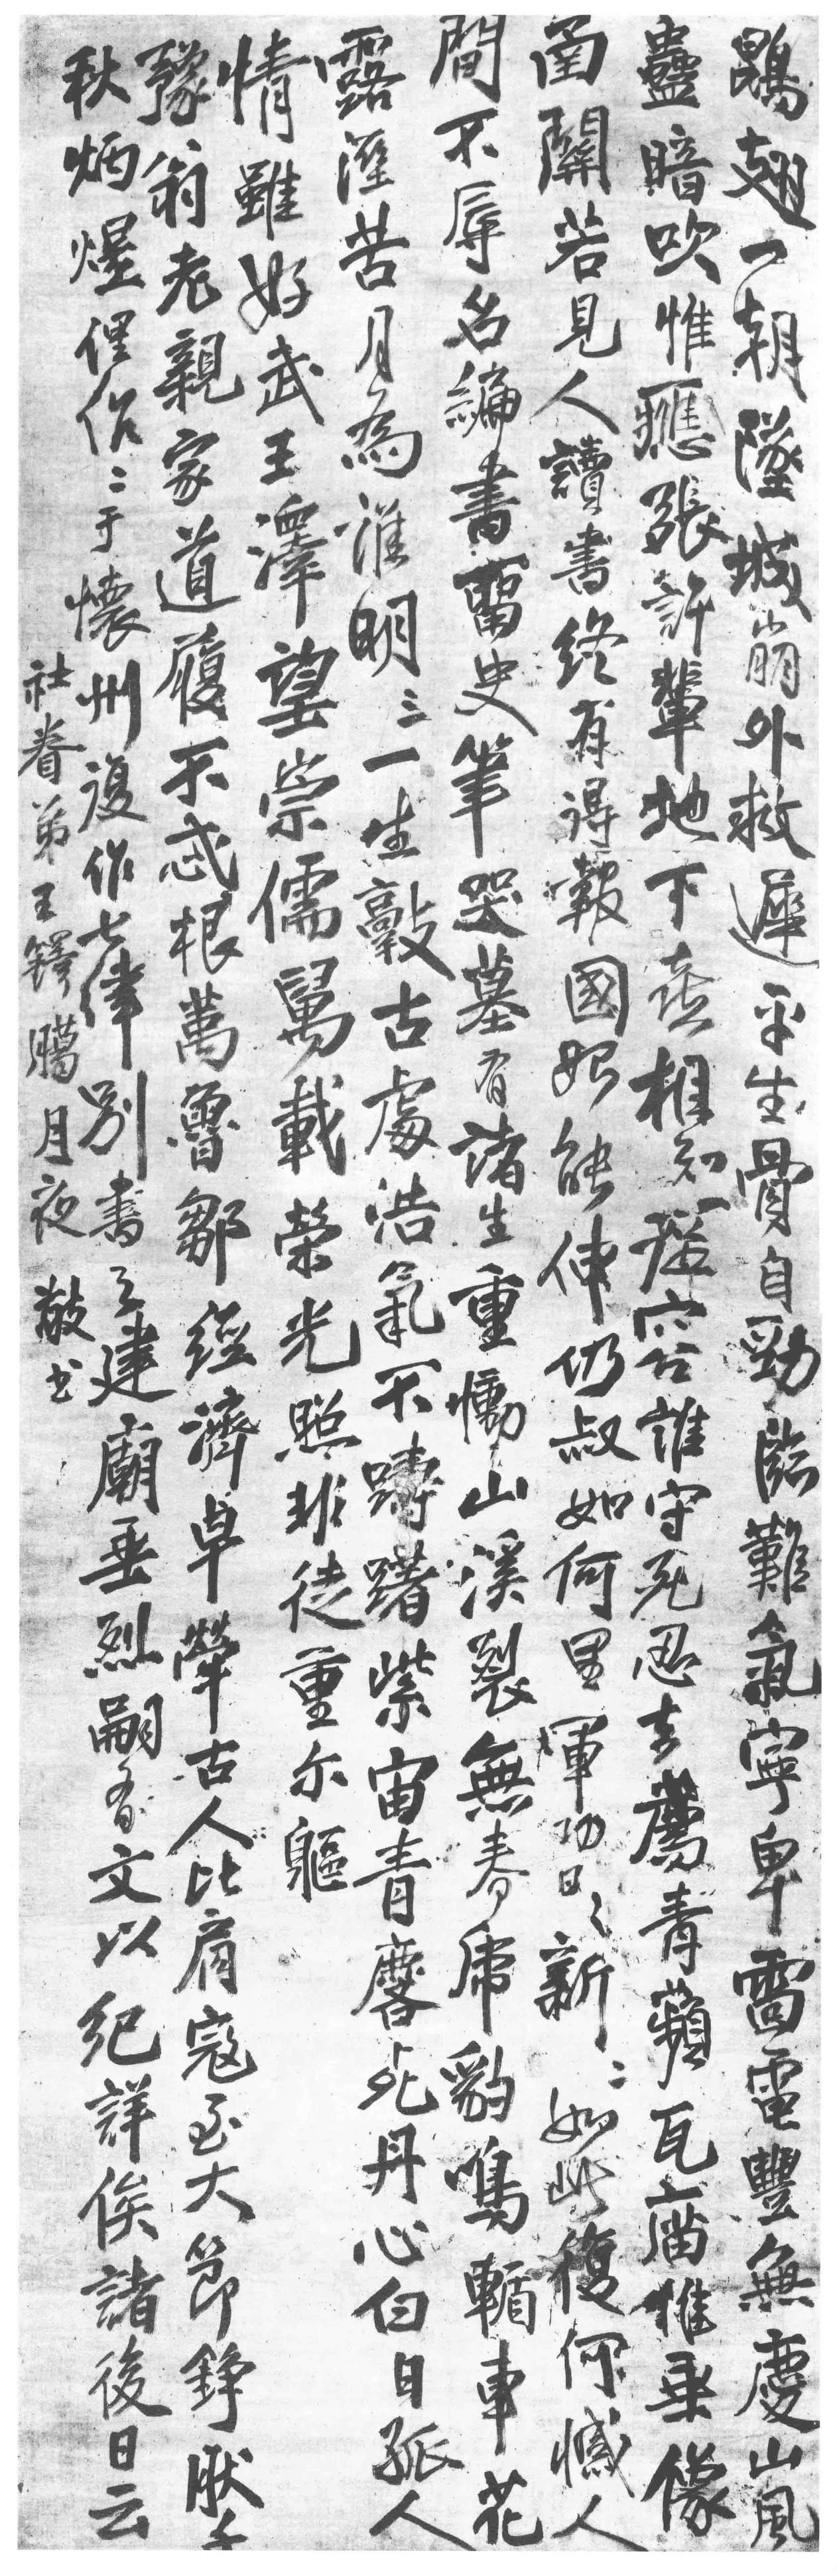 鵾翅一朝墜城崩外救遲平生骨自勁臨難氣寧卑雷電豐無慶山風
蠱暗吹惟應張許輩地下喜相知一瑤容誰守死忍去薦青蘋瓦廟惟垂像
南關若見人讀書終有得報國始能伸仍叔如何里軍功日々新二如此復何憾人
間不辱名編書留史筆哭墓有諸生重慟山溪裂無春虎豹鳴輀車花
露溼苦月為誰明三一生敲古處浩氣不躊躇紫宙青麐死丹心白日孤人
情雖好武王澤望崇儒萬載榮光照非徒重尔軀
豫翁老親家道履不忒根萬魯鄒經濟卓犖古人比肩寇至大節錚肰千
秋炳煜侄侶二于懷州復作七律別書之建廟垂烈嗣有文以紀詳俟諸後日云
社眷弟王鐸臈月夜敬書